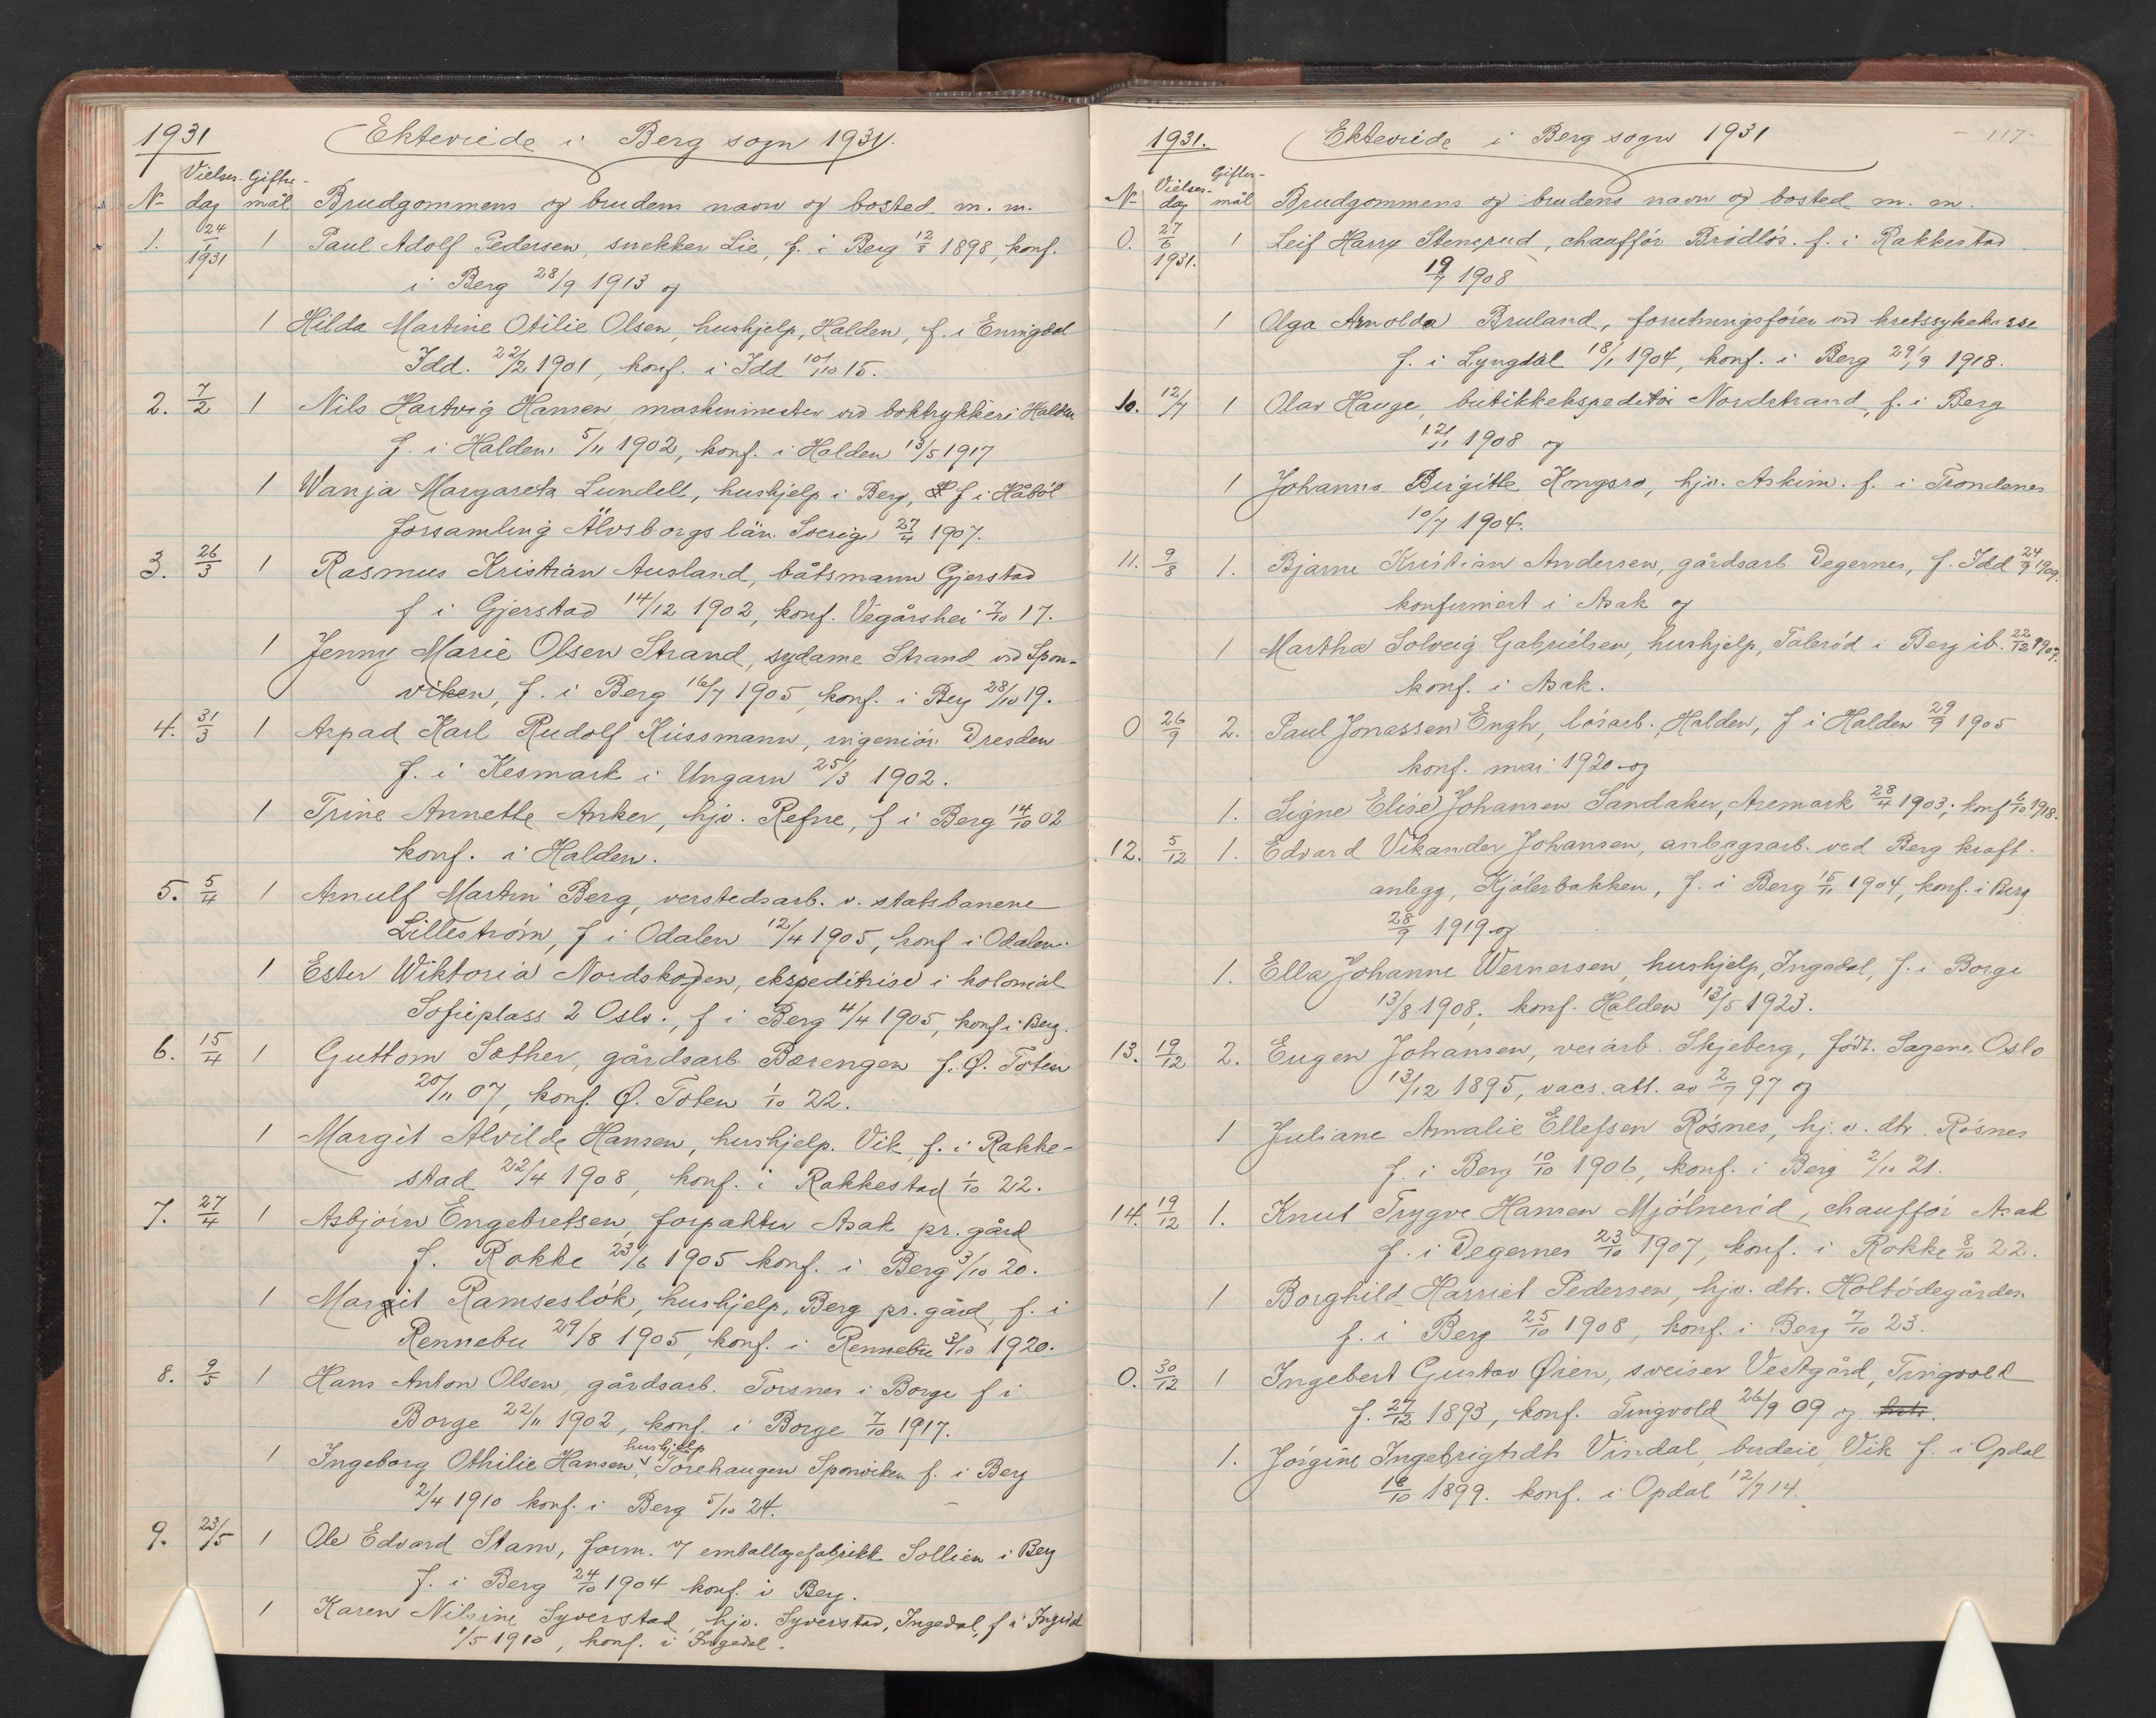 1931 Ekteviede i Berg sogn 1931.
Vielses- Gifte-
No dag mål Brudgommens og brudens navn og bosted m. m.
1. 24/1 1931 1 Paul Adolf Pedersen, snekker Lie, f. i Berg 12/8 1898, konf.
i Berg 28/9 1913 og
1 Hilda Martine Otilie Olsen, hushjelp, Halden, f. i Enningdal
Idd. 22/2 1901, konf. i Idd 10/10 15.
2. 7/2 1 Nils Hartvig Hansen, maskinmester ved boktrykkeri Halden
f. i Halden 5/11 1902, konf. i Halden 13/5 1917
1 Wanja Margareta Lundell, hushjelp i Berg, f i Håbôl
forsamling Älvsborgs län. Sverige 27/4 1907.
3. 26/3 1 Rasmus Kristian Ausland, båtsmann Gjerstad
f i Gjerstad 14/12 1902, konf. Vegårshei 7/10 17.
1 Jenny Marie Olsen Strand, sydame Strand ved Spon-
viken, f. i Berg 16/7 1905, konf. i Berg 28/10 19.
4. 31/3 1 Arpad Karl Rudolf Küssmann, ingeniör Dresden
f. i Kesmark i Ungarn 25/3 1902.
1 Trine Annette Anker, hjv. Refne, f i Berg 14/10 02
konf. i Halden.
5. 5/4 1 Arnulf Martin Berg, verstedsarb. v. statsbanene
Lilleström, f i Odalen 12/4 1905, konf i Odalen.
1 Ester Wiktoria Nordskogen, ekspeditrise i kolonial
Sofieplass 2 Oslo., f i Berg 4/4 1905, konf i Berg.
6. 15/4 1 Guttorm Sæther, gårdsarb. Bærengen f. Ø. Toten
20/11 07, konf. Ø. Toten 1/10 22.
1 Margit Alvilde Hansen, hushjelp. Vik, f. i Rakke-
stad 22/4 1908, konf. i Rakkestad 1/10 22.
7. 27/4 1 Asbjörn Engebretsen, forpakter Asak pr. gård
f. Rokke 23/6 1905 konf. i Berg 3/10 20.
1 Margit Ramseslök, hushjelp, Berg pr. gård, f. i
Rennebu 29/8 1905, konf. i Rennebu 3/10 1920.
8. 9/5 1 Hans Anton Olsen, gårdsarb. Torsnes i Borge f i
Borge 22/11 1902, konf. i Borge 7/10 1917.
hushjelp
1 Ingeborg Othilie Hansen, Torehaugen Sponviken f. i Berg
2/4 1910 konf. i Berg 5/10 24.
9. 23/5 1 Ole Edvard Stam, form. v/ emballagefabrikk Sollien i Berg
f. i Berg 24/10 1904 konf. i Berg.
1 Karen Nilsine Syverstad, hjv. Syverstad, Ingedal, f i Ingedal
1/5 1910, konf. i Ingedal.
1931. Ekteviede i Berg sogn 1931 - 117-
Vielses- Giftes-
No dag mål Brudgommens og brudens navn og bosted m. m.
0. 27/6 1931. 1 Leif Harry Stensrud, chaufför Brödlös. f. i Rakkestad
19/7 1908
1 Olga Arnolda Bruland, forretningsförer ved kretssykekasse
f. i Lyngdal 18/1 1904, konf. i Berg 29/9 1918.
10. 12/7 1 Olav Hauge, butikkekspeditör Nordstrand, f. i Berg
12/11 1908 og
1 Johanna Birgitte Kongsro, hjv. Askim. f. i Trondenes
10/7 1904.
11. 9/8 1. Bjarne Kristian Andersen, gårdsarb. Degernes, f. Idd 24/9 1909.
konfirmert i Asak og
1 Martha Solveig Gabrielsen, hushjelp, Taleröd i Berg ib. 22/12 1907.
konf. i Asak.
0 26/9 2. Paul Jonassen Engh, lösarb. Halden, f i Halden 29/9 1905
konf. mai 1920 og
1. Signe Elise Johansen Sandaker, Aremark 28/4 1903; konf 6/10 1918.
12. 5/12 1. Edvard Vikander Johansen, anleggsarb. ved Berg kraft-
anlegg, Kjölerbakken, f. i Berg 15/11 1904, konf. i Berg
28/9 1919 og
1. Ella Johanne Wernersen, hushjelp, Ingedal, f. i Borge
13/8 1908, konf. Halden 13/5 1923.
13. 19/12 2. Eugen Johansen, veiarb. Skjeberg, födt. Sagene Oslo
13/12 1895, vacs. att. av 2/7 97 og
1 Juliane Amalie Ellefsen Rösnes, hj. v. dtr. Rösnes
f. i Berg 10/10 1906, konf. i Berg 2/10 21.
14. 19/12 1. Knut Trygve Hansen Mjölneröd, chaufför Asak
f. i Degernes 23/10 1907, konf. i Rokke 8/10 22.
1 Borghild Harriet Pedersen, hjv. dtr. Holtödegården
f. i Berg 25/10 1908, konf. i Berg 7/10 23.
0. 30/12 1 Ingebert Gustav Øien, sveiser Vestgård, Tingvold
f. 27/12 1893, konf. Tingvold 26/9 09 og
1. Jörgine Ingebrigtsdtr Vindal, budeie, Vik f. i Opdal
16/10 1899. konf. i Opdal 12/7 14.